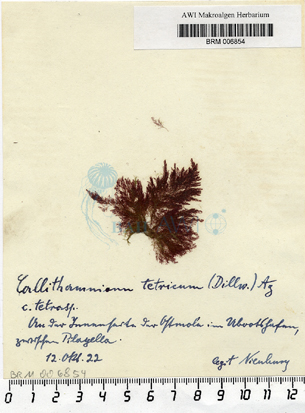 AWI Makroalgen Herbarium
BRM 006854
Callithamnion tetricum (Dillw.) Ag
c. tetrasp.
An der Innenseite der Ostmole im Ubootshafen,
zwischen Pilayella.
12. Okt. 22
legit Nienburg
BRM 006854
0 1 2 3 4 5 6 7 8 9 10 11 12